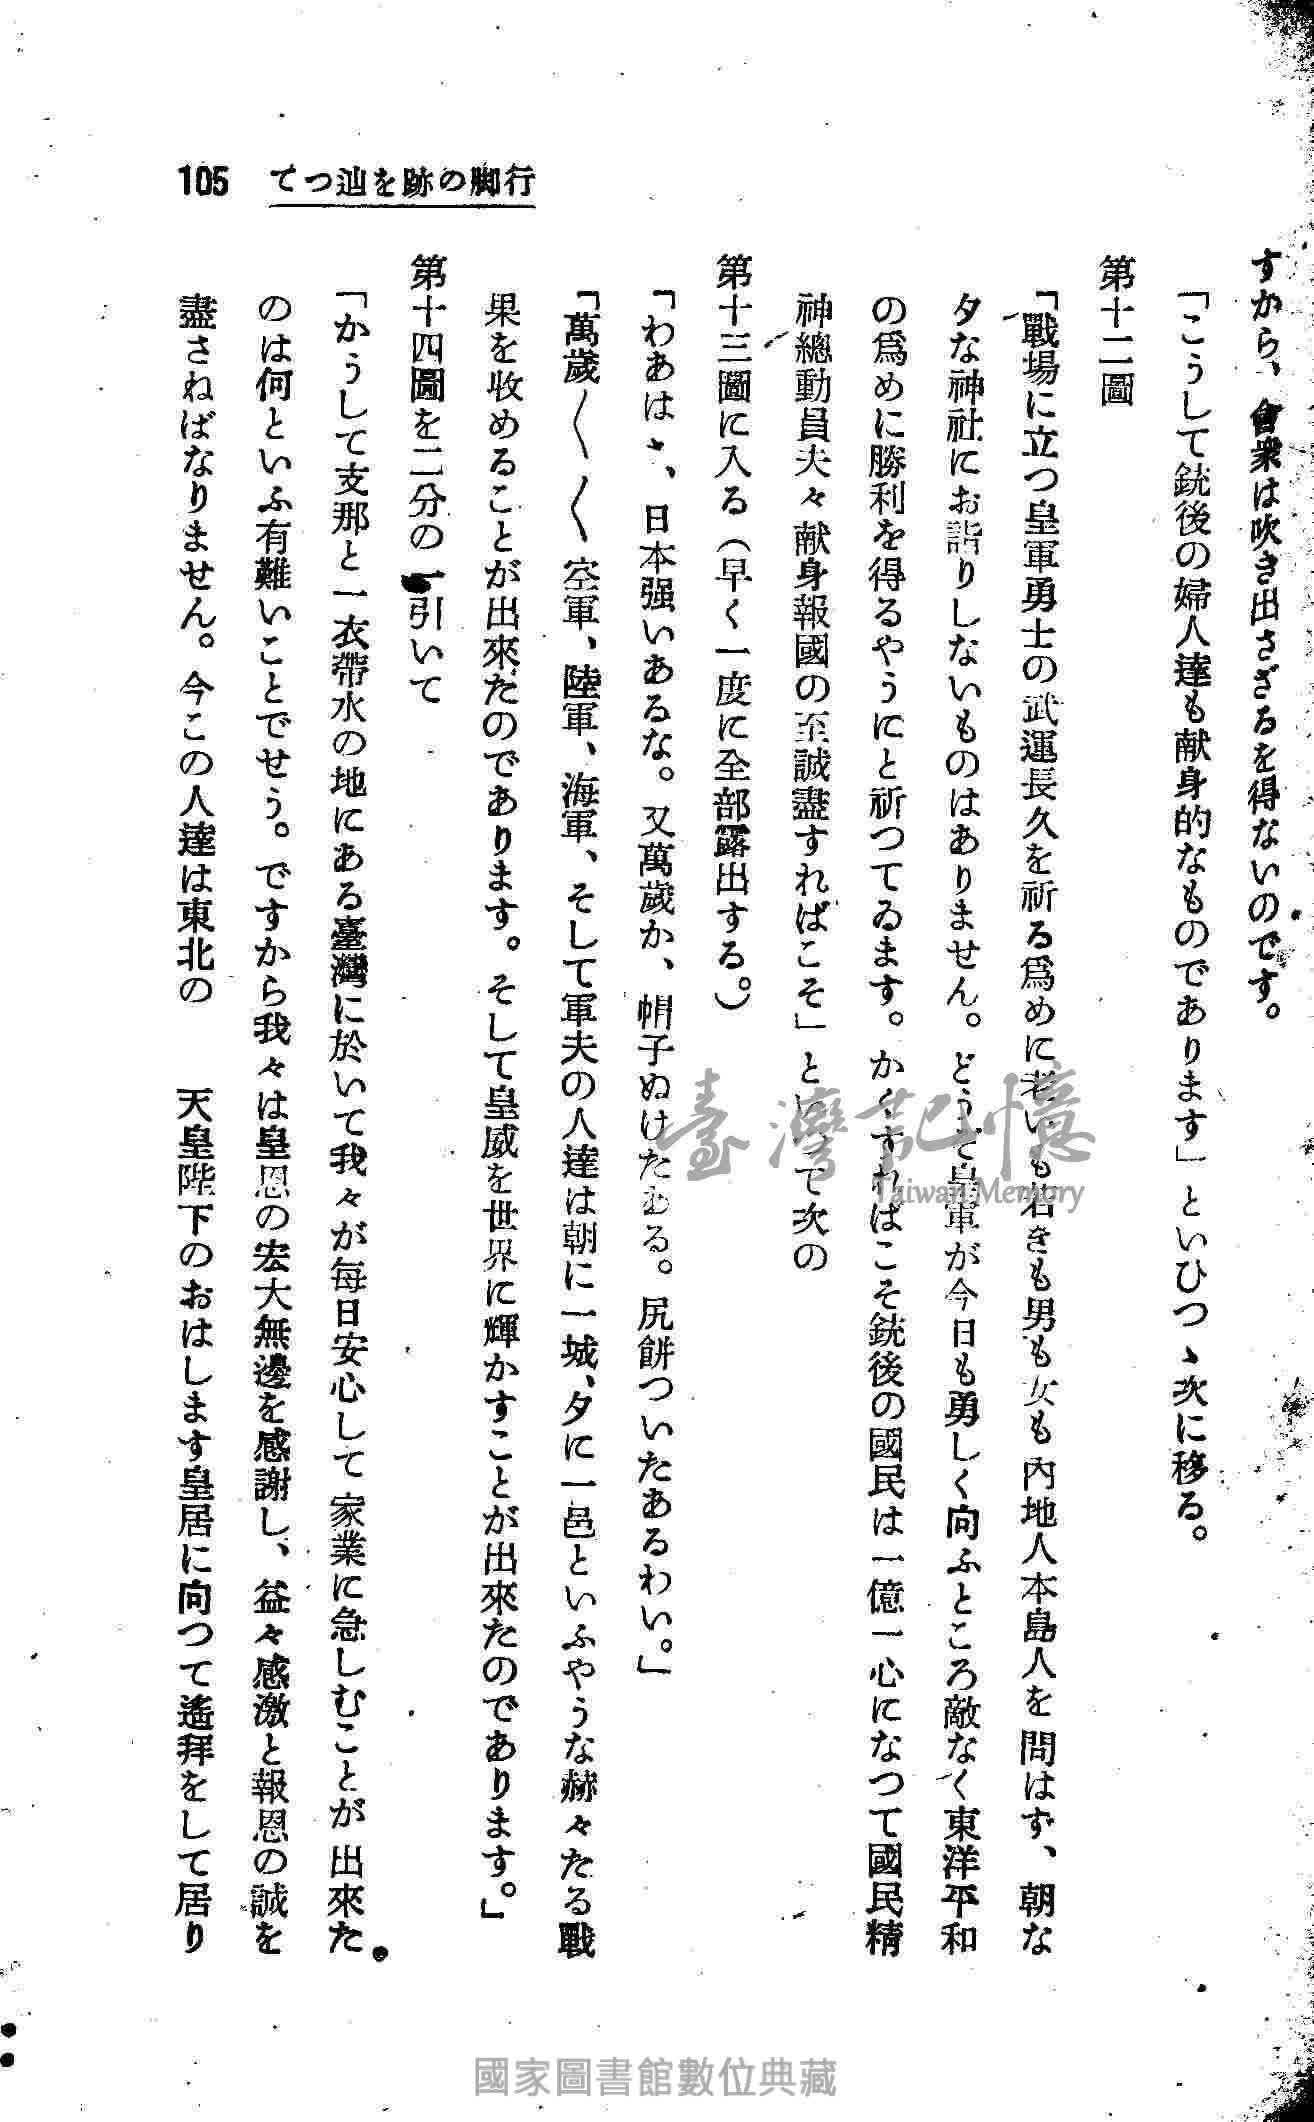 105 てつ辿を跡の脚行
すから、會衆は吹き出さざるを得ないのです。
「こうして銃後の婦人達も献身的なものであります」といひつゝ次に移る。
第十二圖
「戰場に立つ皇軍勇士の武運長久を祈る爲めに老いも若きも男も女も內地人本島人を問はず、朝な
夕な神社にお詣りしないものはありません。どうぞ皇軍が今日も勇しく向ふところ敵なく東洋平和
の爲めに勝利を得るやうにと祈つてゐます。かくすればこそ銃後の國民は一億一心になつて國民精
神總動員夫々献身報國の至誠盡すればこそ」といつて次の
第十三圖に入る(早く一度に全部露出する。)
「わあはゝ、日本强いあるな。又萬歲か、帽子ぬけたある。尻餅ついたあるわい。」
「萬歲〱〱空軍、陸軍、海軍、そして軍夫の人達は朝に一城、夕に一邑といふやうな赫々たる戰
果を收めることが出來たのであります。そして皇威を世界に輝かすことが出來たのであります。」
第十四圖を二分の一引いて
「かうして支那と一衣帶水の地にある臺灣に於いて我々が每日安心して家業に急しむことが出來た
のは何といふ有難いことでせう。ですから我々は皇恩の宏大無邊を感謝し、益々感激と報恩の誠を
盡さねばなりません。今この人達は東北の 天皇陛下のおはします皇居に向つて遙拜をして居り
臺灣記憶
Taiwan Memory
國家圖書館數位典藏